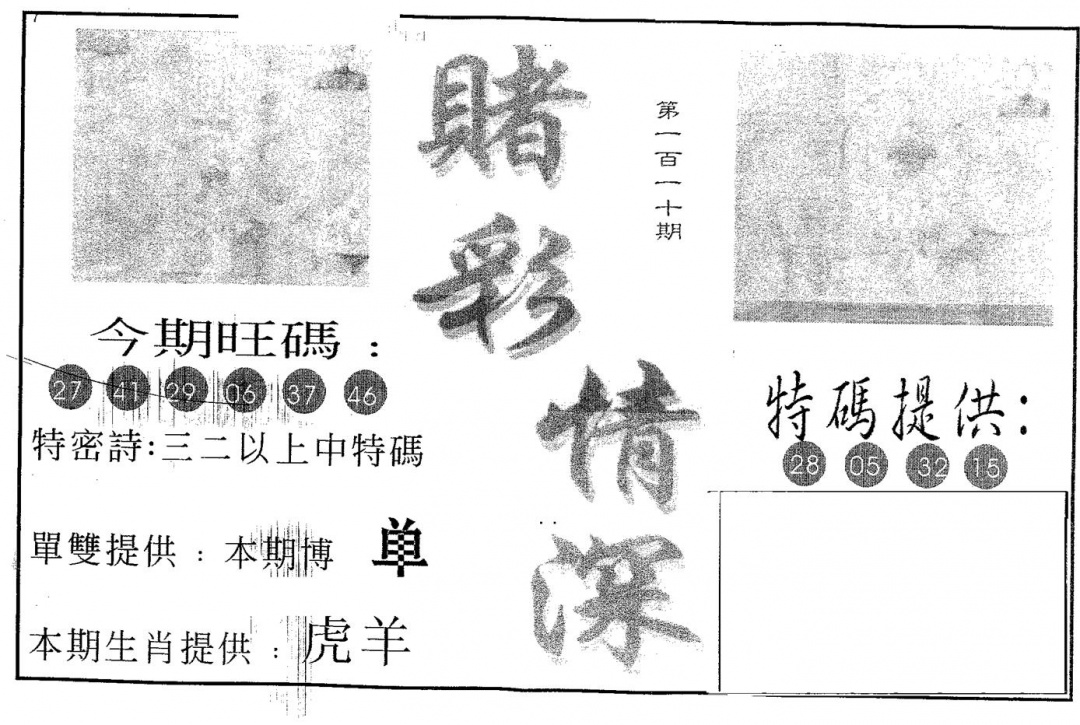 賭彩情深
第一百一十期
今期旺碼：
27 41 29 06 37 46
特密詩：三二以上中特碼
單雙提供：本期博 单
本期生肖提供：虎羊
特碼提供：
28 05 32 15